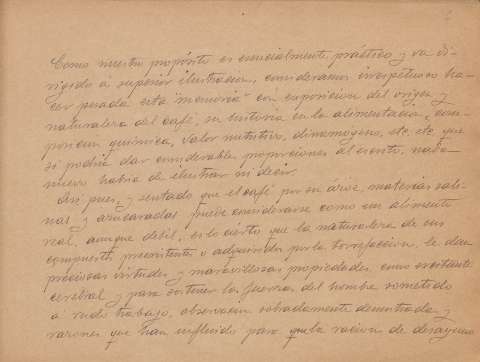 Como nuestro propósito es esencialmente práctico y va di-
rigido á superior ilustracion, consideramos irrespetuoso ha-
cer pesada esta "memoria" con exposicion del origen y
naturaleza del café, su historia en la alimentacion, com-
posicion quimica, valor nutritivo, dinamogeno, etc, etc que
si podria dar considerables proporciones al escrito, nada
nuevo habia de ilustrar ni decir.
Asi pues, y sentado que el café por su ázoe, materias sali-
nas y azucaradas puede considerarse como un alimento
real, aunque debil, es lo cierto que la naturaleza de sus
compuestos preexistentes ó adquiridos por la torrefaccion, le dan
preciosas virtudes y maravillosas propiedades como excitante
cerebral y para sostener las fuerzas del hombre sometido
a rudo trabajo, observacion sobradamente demostrada y
razones que han influido para que la racion de desayuno